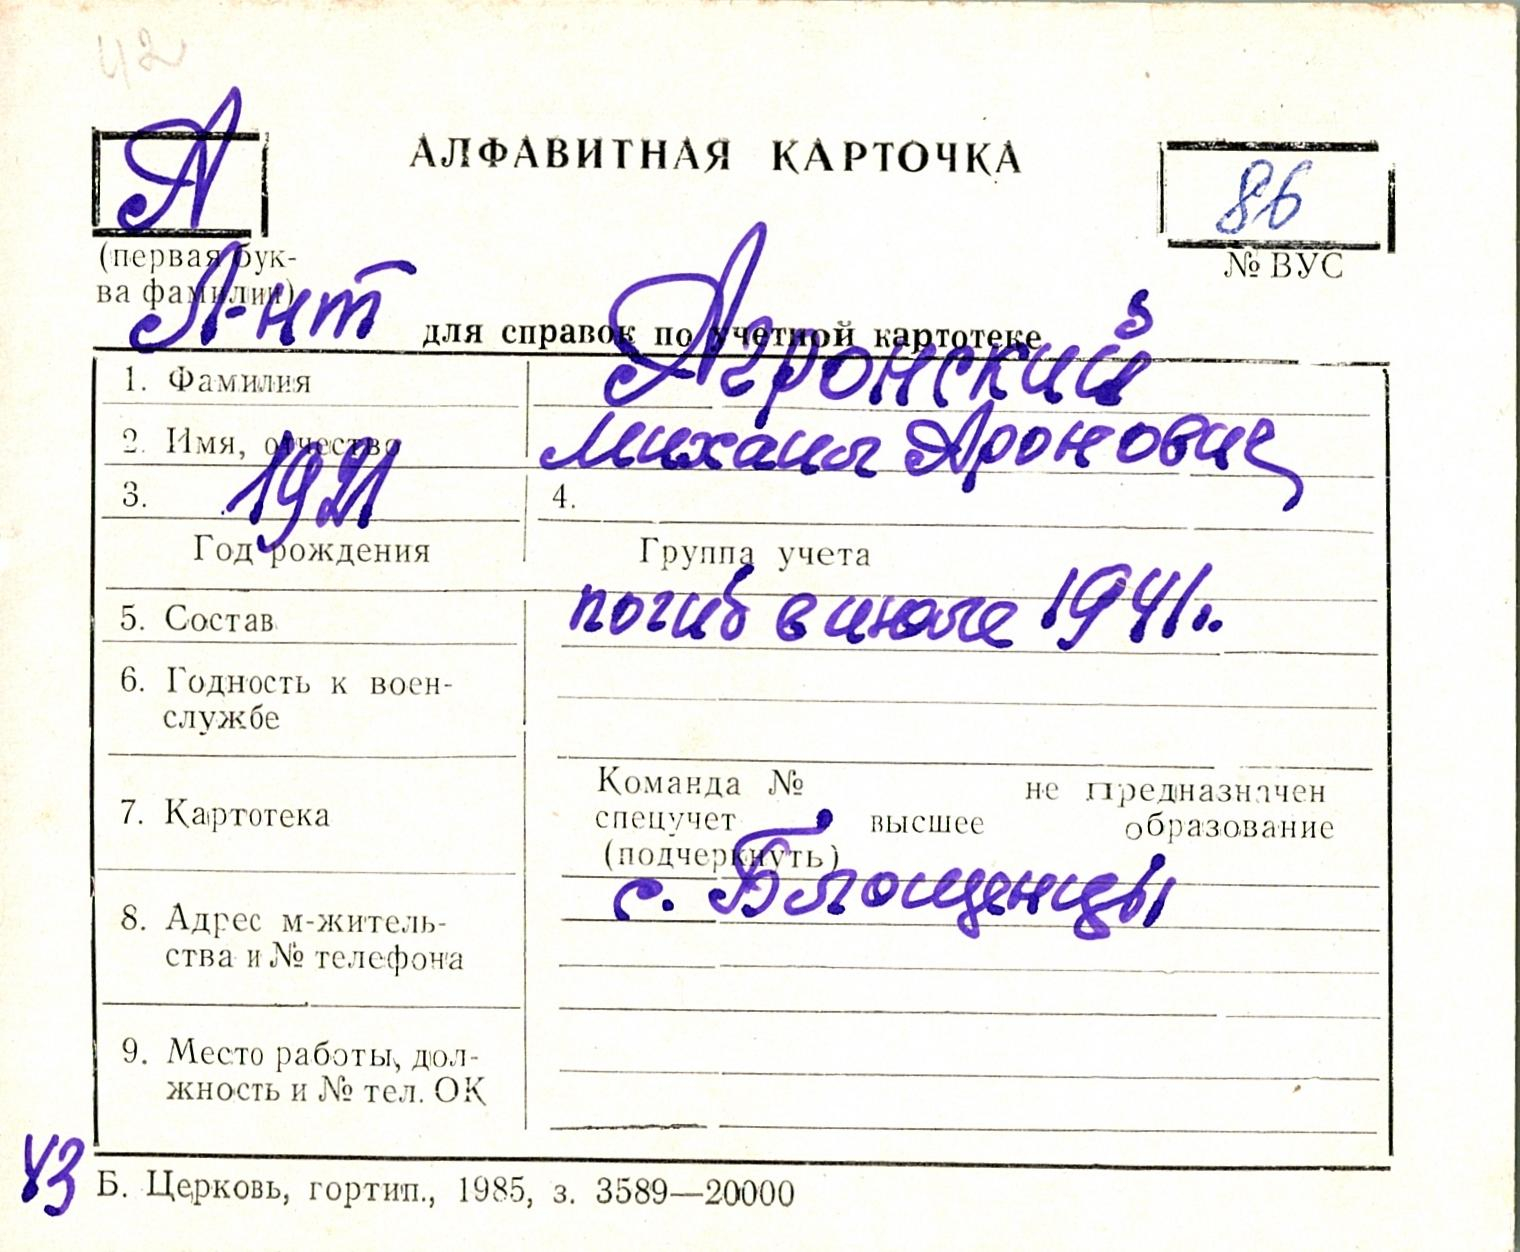 42
А
АЛФАВИТНАЯ КАРТОЧКА
86
(первая бук-
ва фамилии)
№ ВУС
Л-нт
для справок по учетной картотеке
1. Фамилия Агронский
2. Имя, отчество Михаил Аронович
3. 1921 4.
Год рождения Группа учета
5. Состав погиб в июле 1941г.
6. Годность к воен-
службе
Команда № не предназначен
7. Картотека спецучет высшее образование
(подчеркнуть)
с. Блощенцы
8. Адрес м-житель-
ства и № телефона
9. Место работы, дол-
жность и № тел. ОК
43
Б. Церковь, гортип., 1985, з. 3589—20000